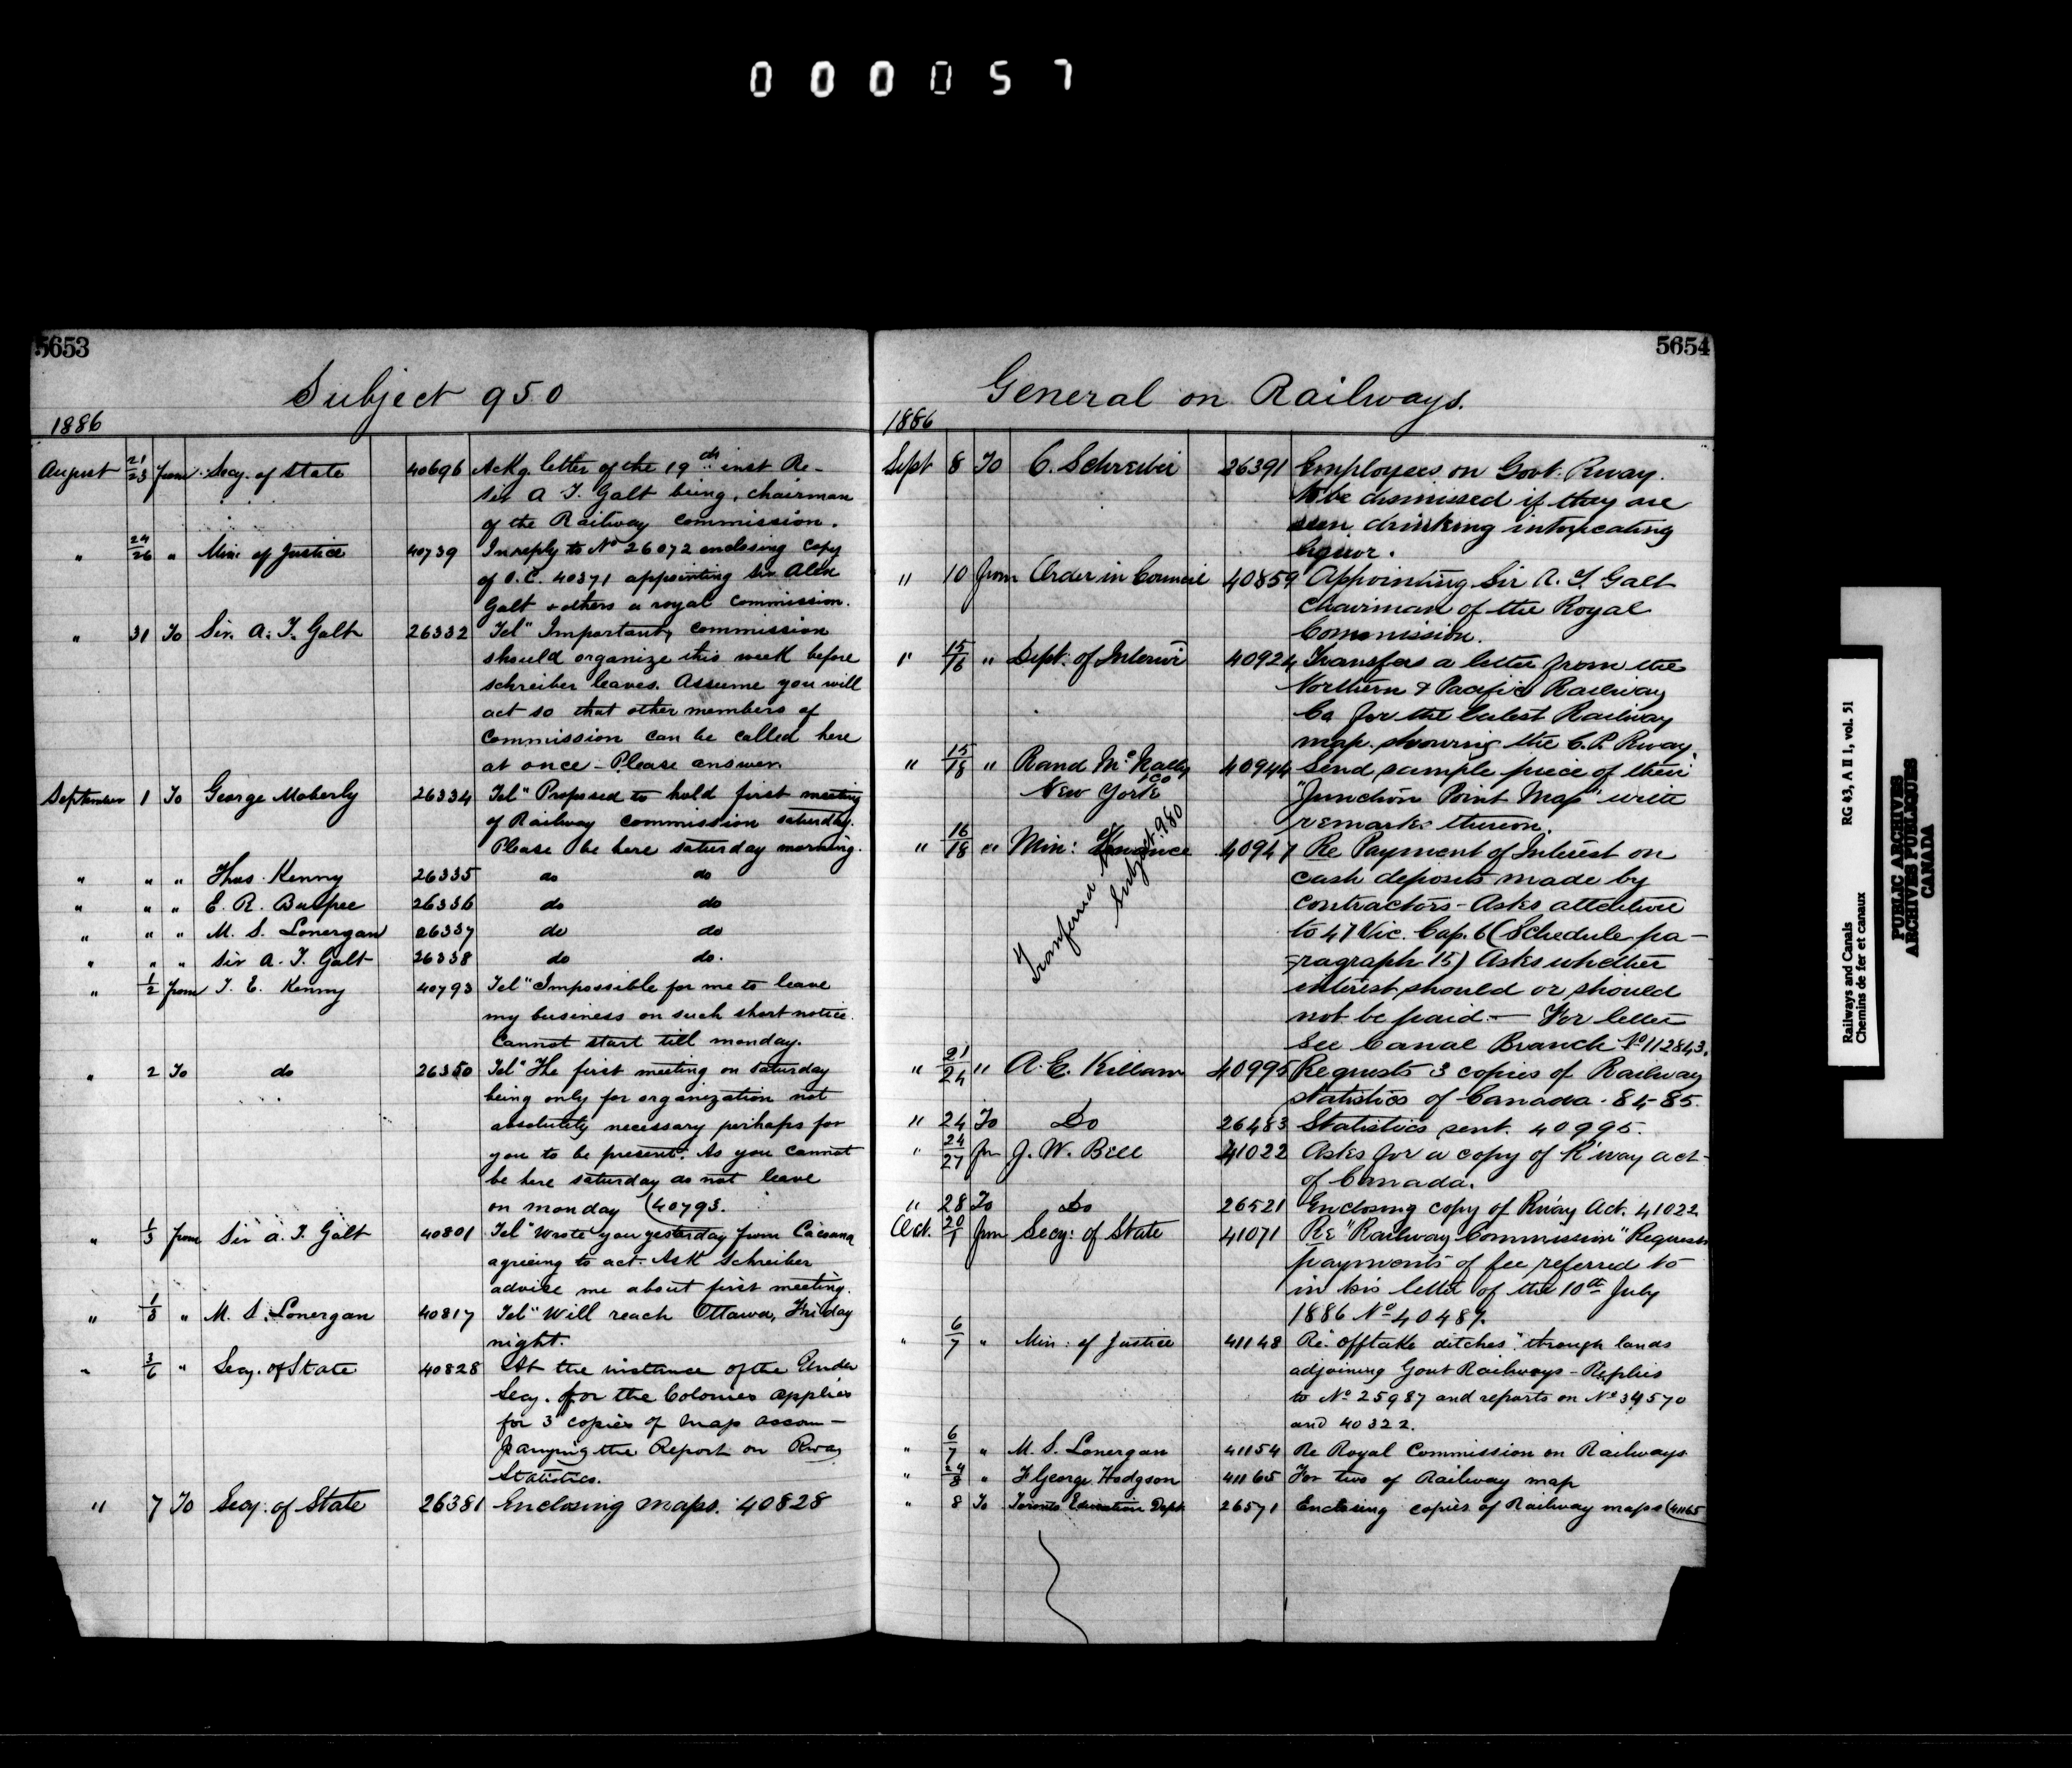 000057
5653
Subject 950
1886
August 21/23 from Secy. of State 40696 Ackg. letter of the 19th inst Re-
Sir A T. Galt being, chairman
of the Railway commission.
" 24/26 " Min: of Justice 40739 In reply to No 26072 enclosing copy
of O.C. 40371 appointing Sir Alex
Galt & others a royal commission.
" 31 To Sir. A. T. Galt 26332 Tel" Important, commission
should organize this week before
schreiber leaves. Assume you will
act so that other members of
Commission can be called here
at once - Please answer.
September 1 To George Moberly 26334 Tel" Proposed to hold first meeting
of Railway commission saturday.
Please be here saturday morning.
" " " Thos. Kenny 26335 do do
" " " E. R. Burpee 26336 do do
" " " M. S. Lonergan 26337 do do
" " " Sir A. T. Galt 26338 do do.
" 1/2 from T. E. Kenny 40793 Tel "Impossible for me to leave
my business on such short notice.
Cannot start till monday.
" 2 To do 26350 Tel" The first meeting on saturday
being only for organization not
absolutely necessary perhaps for
you to be present. As you cannot
be here saturday do not leave
on monday (40793.
" 1/3 from Sir A. T. Galt 40801 Tel "Wrote you yesterday from
agreeing to act. Ask Schreiber
advise me about first meeting.
" 1/3 " M. S. Lonergan 40817 Tel "Will reach Ottawa, Friday
night.
" 3/6 " Secy. of State 40828 At the instance of the Under
Secy. for the Colonies applies
for 3 copies of map accom-
panying the Report on Rway
Statistics.
" 7 To Secy: of State 26381 Enclosing maps. 40828
5654
General on Railways.
1886
Sept 8 To C. Schreiber 26391 Employees on Govt. Rway.
to be dismissed if they are
seen drinking intoxicating
liquor.
" 10 from Order in Council 40859 Appointing Sir A. T. Galt
chairman of the Royal
Commission.
" 15/16 " Dept: of Interior 40924 Transfers a letter from the
Northern & Pacific Railway
Co for the latest Railway
map. showing the C. P. Rway.
" 15/18 " Rand McNally & Co 40944 Send sample piece of their
New York "Junction Point Map" with
remarks thereon.
" 16/18 " Min: of Finance 40947 Re Payment of Interest on
cash deposits made by
contractors - Asks attention
to 47 Vic. Cap. 6 (Schedule pa-
ragraph 15) Asks whether
interest should or should
not be paid. - For letter
See Canal Branch No 112843.
Tranferred to Subject 980
" 21/24 " A. E. Killam 40995 Requests 3 copies of Railway
statistics of Canada. 84-85.
" 24 To Do 26483 Statistics sent. 40995.
" 24/27 fm J. W. Bell 41022 Asks for a copy of R'way act-
of Canada.
" 28 To Do 26521 Enclosing copy of Rway Act. 41022
Oct. 20/1 from Secy: of State 41071 Re "Railway Commission" Requests
payments of fee referred to
in his letter of the 10th July
1886 No 40487.
" 6/7 " Min: of Justice 41148 Re "offtake ditches" through lands
adjoining Govt Railways - Replies
to No 25987 and reports on No 34570
and 40322.
" 6/7 " M. S. Lonergan 41154 Re Royal Commission on Railways
" 24/8 " F George Hodgson 41165 For two of Railway map
" 8 To Toronto Education Dept 26571 Enclosing copies of Railway maps (41165
RG 43, A II 1, vol. 51
Railways and Canals
Chemins de fer et canaux
PUBLIC ARCHIVES
ARCHIVES PUBLIQUES
CANADA